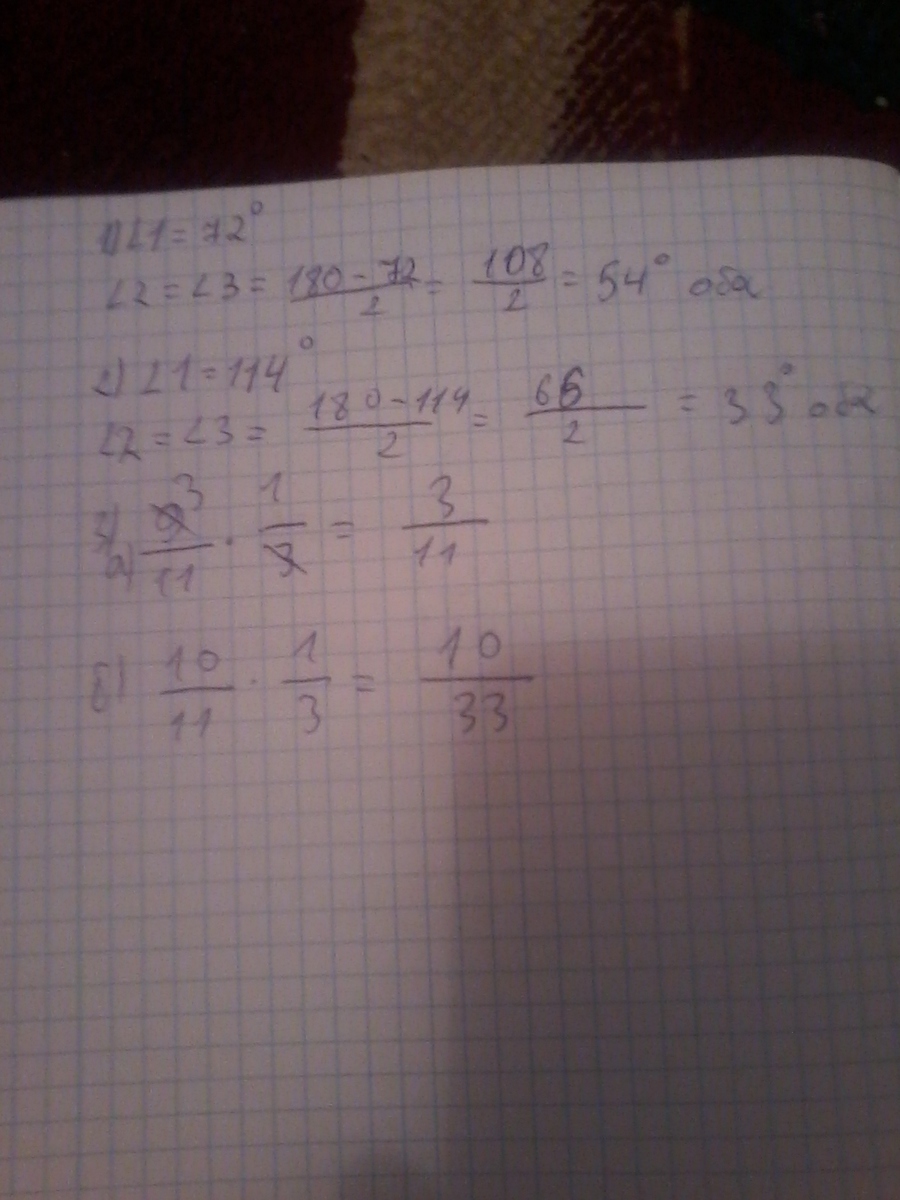 1) ∠1 = 72°
∠2 = ∠3 = (180 - 72)/2 = 108/2 = 54° оба
2) ∠1 = 114°
∠2 = ∠3 = (180 - 114)/2 = 66/2 = 33° оба
3) а) 9̸ ³/11 · 1/3̸ = 3/11
б) 10/11 · 1/3 = 10/33